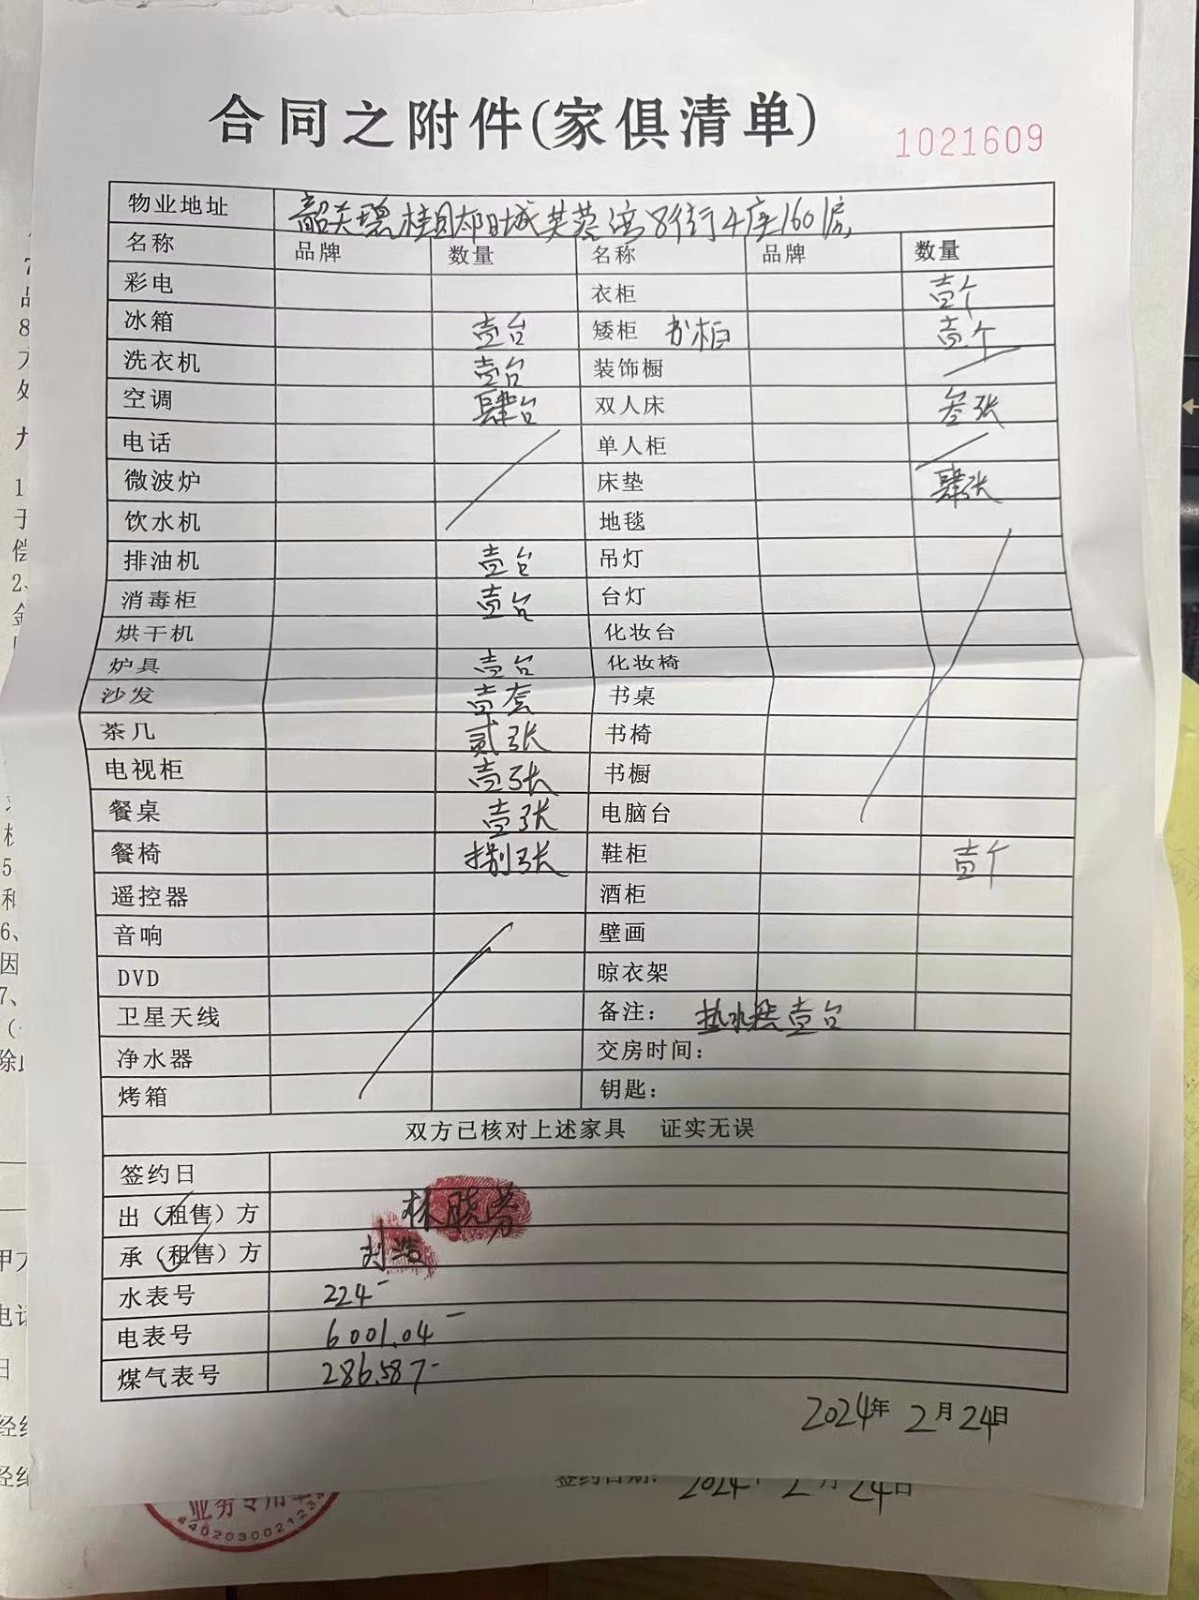 合同之附件(家俱清单)
1021609
物业地址 韶关碧桂园太阳城芙蓉湾8街4座1601房
名称 品牌 数量 名称 品牌 数量
彩电 衣柜 壹个
冰箱 壹台 矮柜 书柜 壹个
洗衣机 壹台 装饰橱
空调 肆台 双人床 叁张
电话 单人柜
微波炉 床垫 肆张
饮水机 地毯
排油机 壹台 吊灯
消毒柜 壹台 台灯
烘干机 化妆台
炉具 壹台 化妆椅
沙发 壹套 书桌
茶几 贰张 书椅
电视柜 壹张 书橱
餐桌 壹张 电脑台
餐椅 捌张 鞋柜 壹个
遥控器 酒柜
音响 壁画
DVD 晾衣架
卫星天线 备注: 热水器壹台
净水器 交房时间:
烤箱 钥匙:
双方已核对上述家具 证实无误
签约日
出(租售)方 林
承(租售)方 刘浩
水表号 224
电表号 6001.04
煤气表号 286.587
2024年2月24日
签约日期: 2024年2月24日
业务专用章